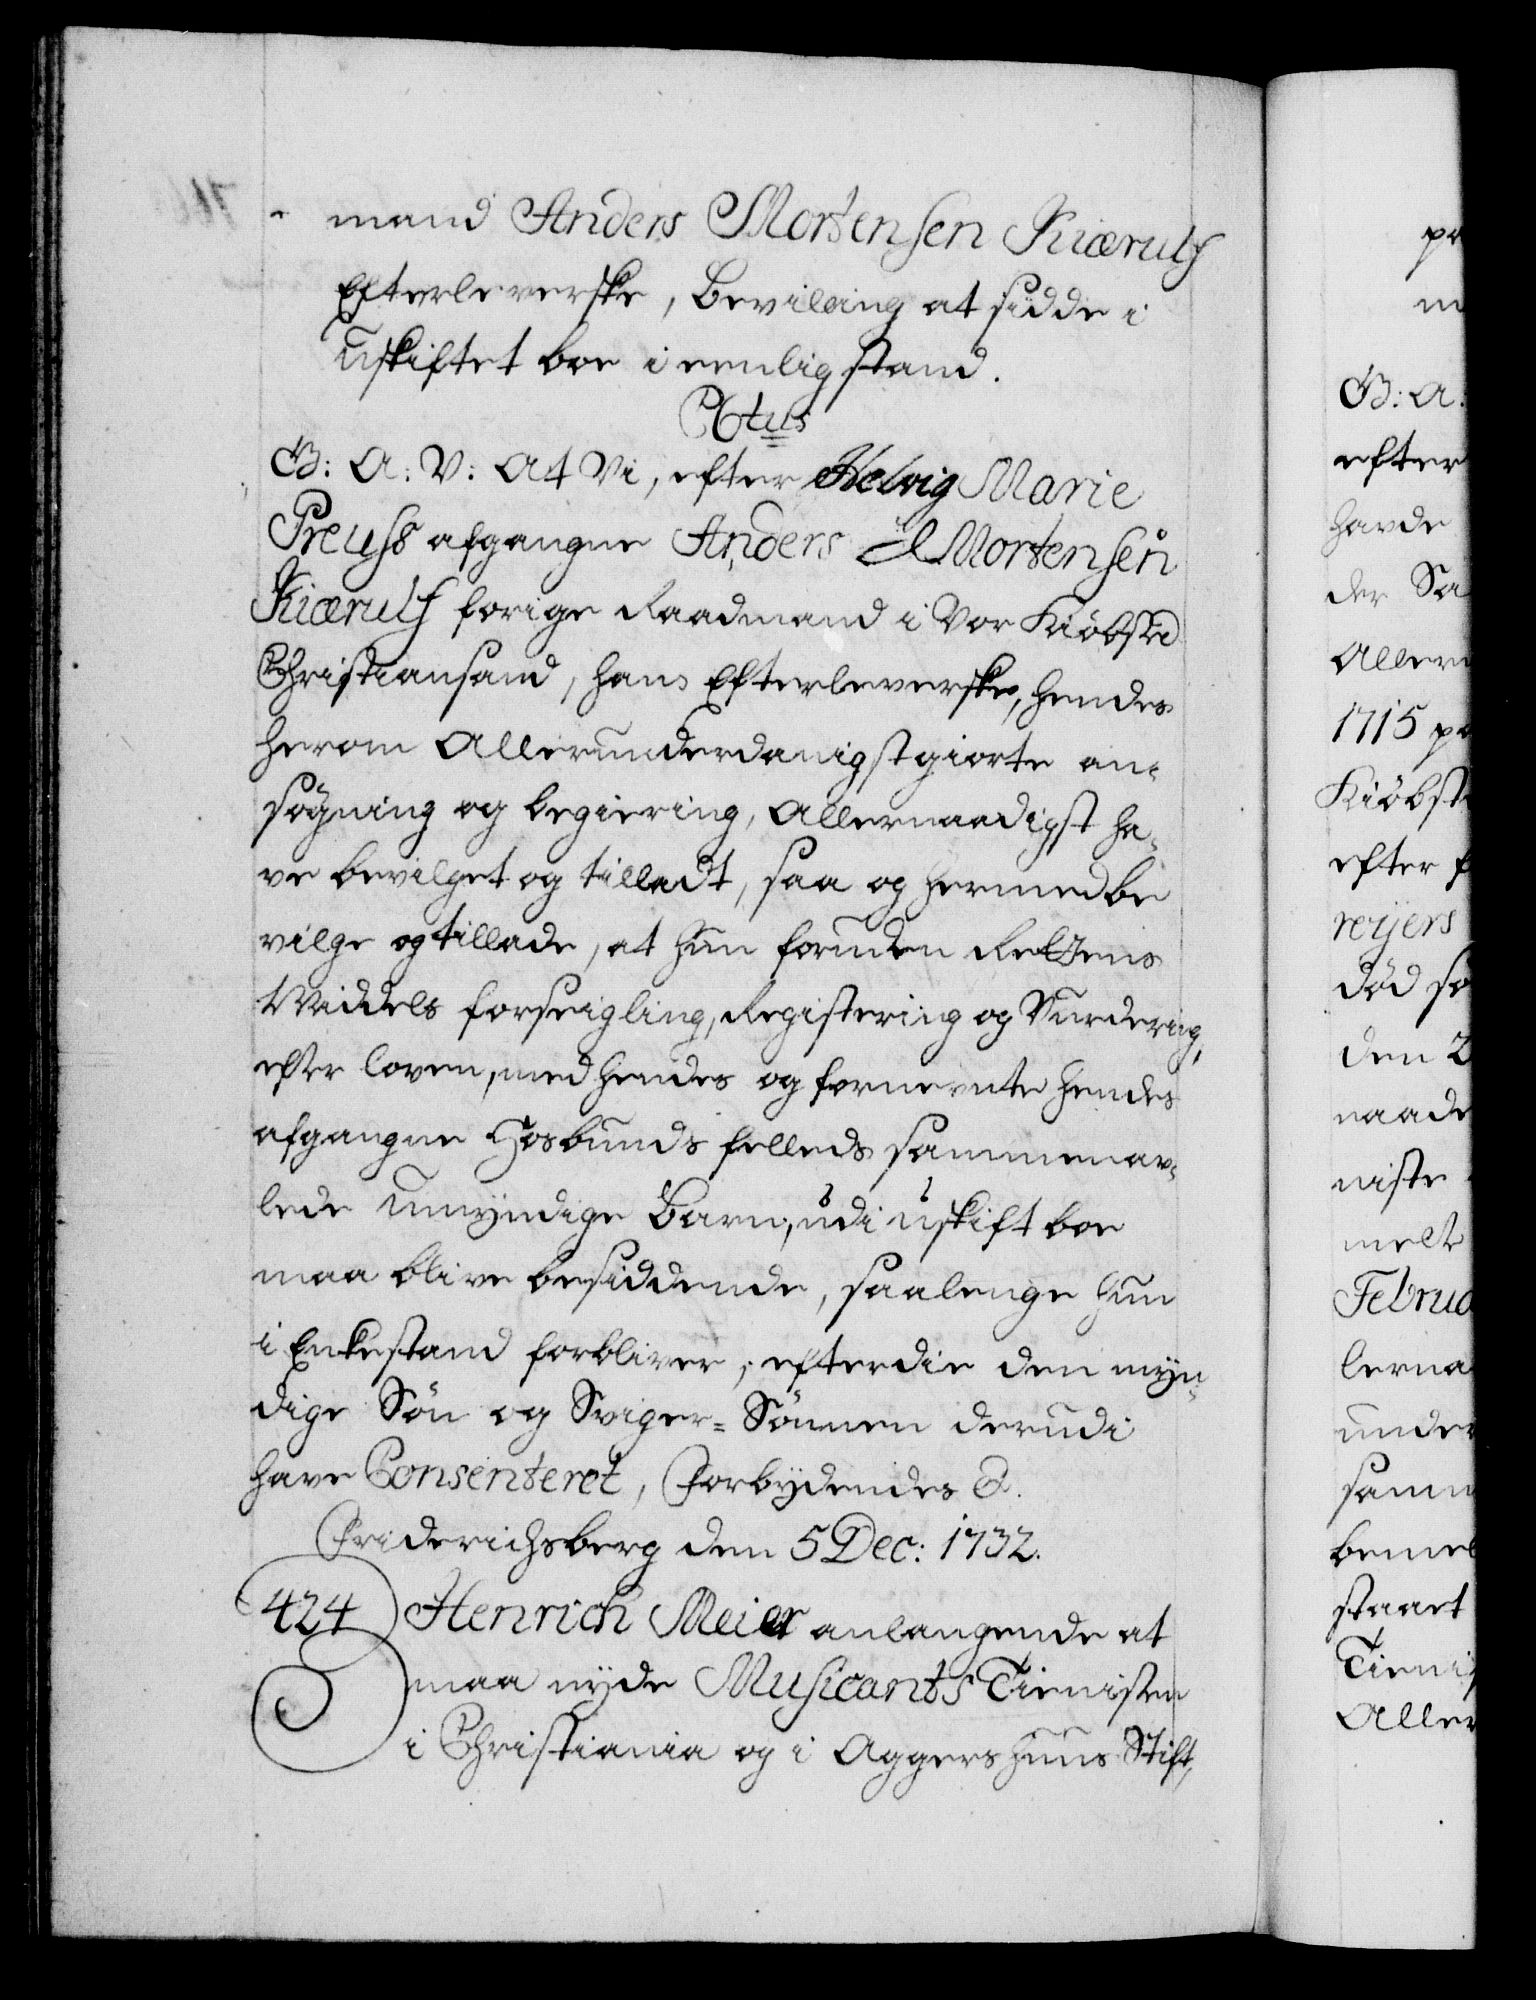 mand Anders Mortensen Kiærulf
Efterleverske, Bevilling at sidde i
Uskiftet boe i eenlig stand.
Ctus
G: A: V: At Vi, efter Helvig Marie
Preuss afgangne Anders Mortensen
Kiærulf forige Raadmand i Vor Kiöbsted
Christiansand, hans Efterleverske, hendes
herom Allerunderdanigst giorte an-
søgning og begiering, Allernaadigst ha-
ve bevilget og tilladt, saa og hermed be
vilge og tillade, at hun foruden Rettens
Middels forseigling, Registering og Vurdering,
efter loven, med hendes og fornevnte hendes
afgangne Hosbunds felleds sammenav-
lede umyndige Barn, udi uskift boe
maa blive besiddende, saalenge hun
i Enkestand forbliver, efterdie den myn-
dige Søn og Sviger-Sønnen derudi
have Consenteret, Forbydendes &.
Friderichsberg den 5 Dec: 1732.
424 Henrich Meier anlangende at
maa nyde Musicants Tienisten
i Christiania og i Aggershuus Stift,
pr
m
G: A:
efter
havde
der Sa
Allern
1715 pa
Kiöbst
efter f
reyers
död sø
den 2
naade
niste
melt
Februa
lerna
under
samm
bemel
staaet
Tienis
Aller